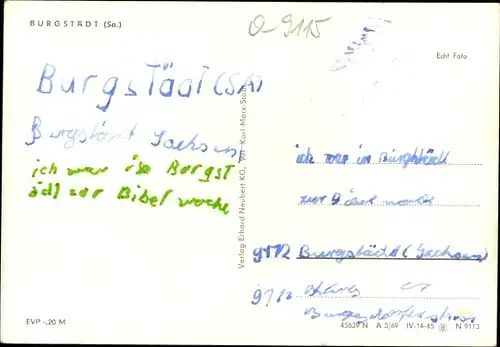 BURGSTÄDT (Sa.)
O-9115
Echt Foto
Burgstädt (SA)
Burgstädt Sachsen
ich war in Borgst
ädt zor Bibel woche
ich war in Burgstädt
zur
9112 Burgstädt (Sachsen)
Verlag Erhard Neubert KG, Karl-Marx-Stadt
EVP -.20 M
45639 N A 3/69 IV-14-45 N 9113